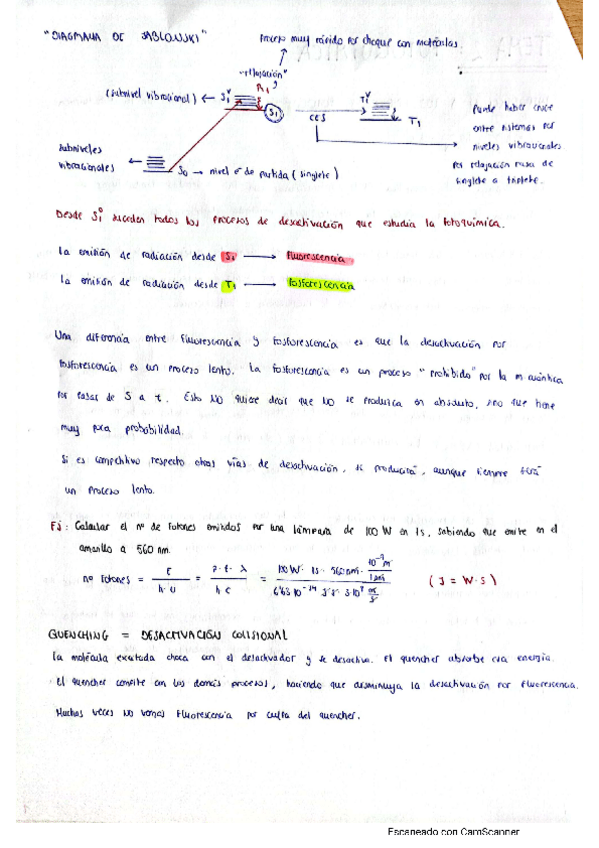 "DIAGRAMA DE JABLONSKI"
Proceso muy rápido por choque con moléculas.
"relajación"
R1
(subnivel vibracional) ← S1^v
S1
CES
T1^v
T1
Puede haber cruce
entre sistemas por
niveles vibracionales
por relajación pasa de
singlete a triplete.
subniveles
vibracionales ←
S0 → nivel de partida (singlete)
Desde S1^0 suceden todos los procesos de desactivación que estudia la fotoquímica.
La emisión de radiación desde S1 → fluorescencia
La emisión de radiación desde T1 → fosforescencia
Una diferencia entre fluorescencia y fosforescencia es que la desactivación por
fosforescencia es un proceso lento. La fosforescencia es un proceso "prohibido" por la m cuántica
por pasar de S a t. Esto NO quiere decir que NO se produzca en absoluto, sino que tiene
muy poca probabilidad.
Si es competitivo respecto otras vías de desactivación, sí producirá, aunque siempre será
un proceso lento.
Ej: Calcular el nº de fotones emitidos por una lámpara de 100 W en 1s, sabiendo que emite en el
amarillo a 560 nm.
nº fotones = E / h·υ = P·t·λ / h c = 100 W · 1s · 560 nm · 10^-9 m / 1 nm / 6'63·10^-34 J·s · 3·10^8 m/s (J = W·s)
QUENCHING = DESACTIVACIÓN COLISIONAL
La molécula excitada choca con el desactivador y se desactiva. El quencher absorbe esa energía.
El quencher compite con los demás procesos, haciendo que disminuya la desactivación por fluorescencia.
Muchas veces NO vemos fluorescencia por culpa del quencher.
Escaneado con CamScanner